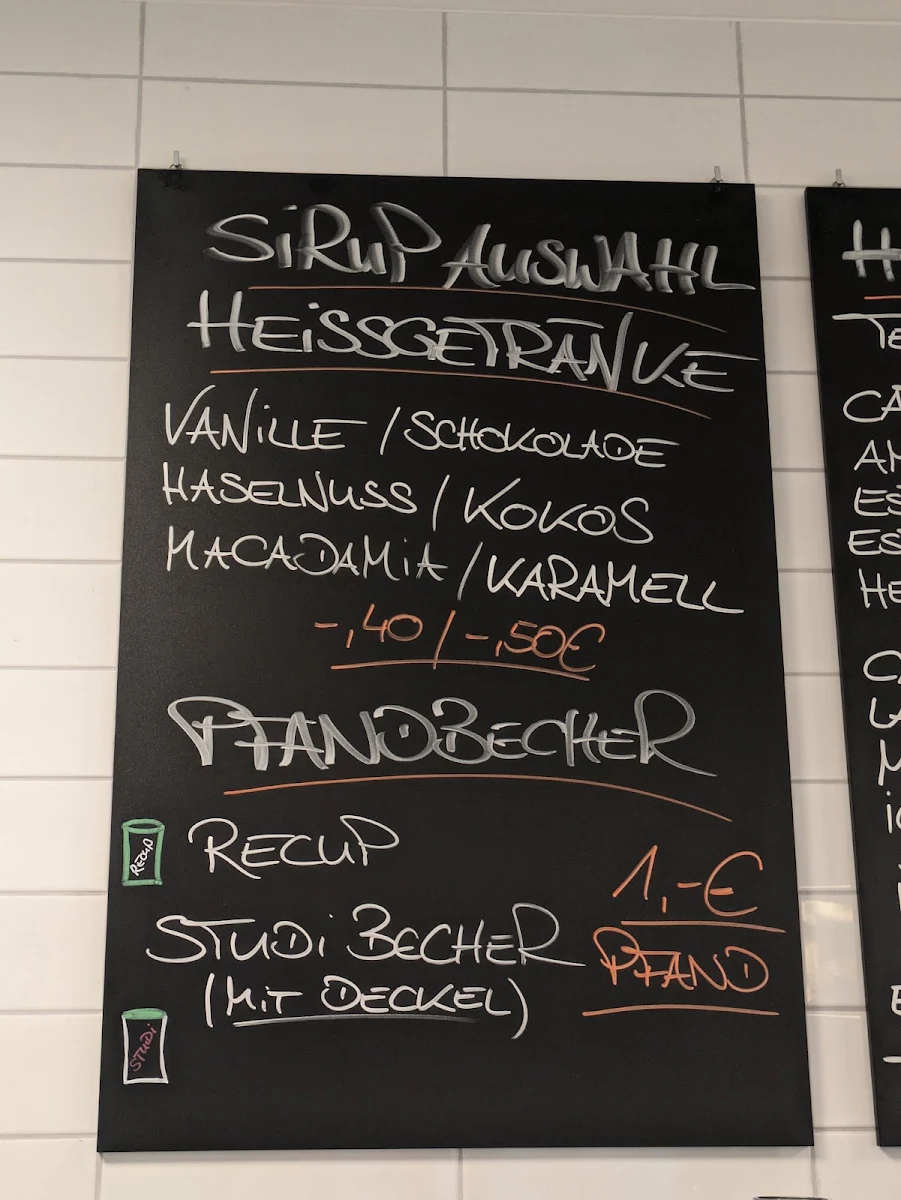 SiRuP AUSWAHL
HEiSSGETRÄNKE
VANiLLE / SCHOKOLADE
HASELNUSS / KOKOS
MACADAMiA / KARAMELL
-,40 / -,50€
PFANDBECHER
RECUP
RECUP
1,-€
PFAND
STUDi BECHER
(MiT DECKEL)
STUDi
H
TE
CA
AM
ES
ES
HE
CA
LA
M